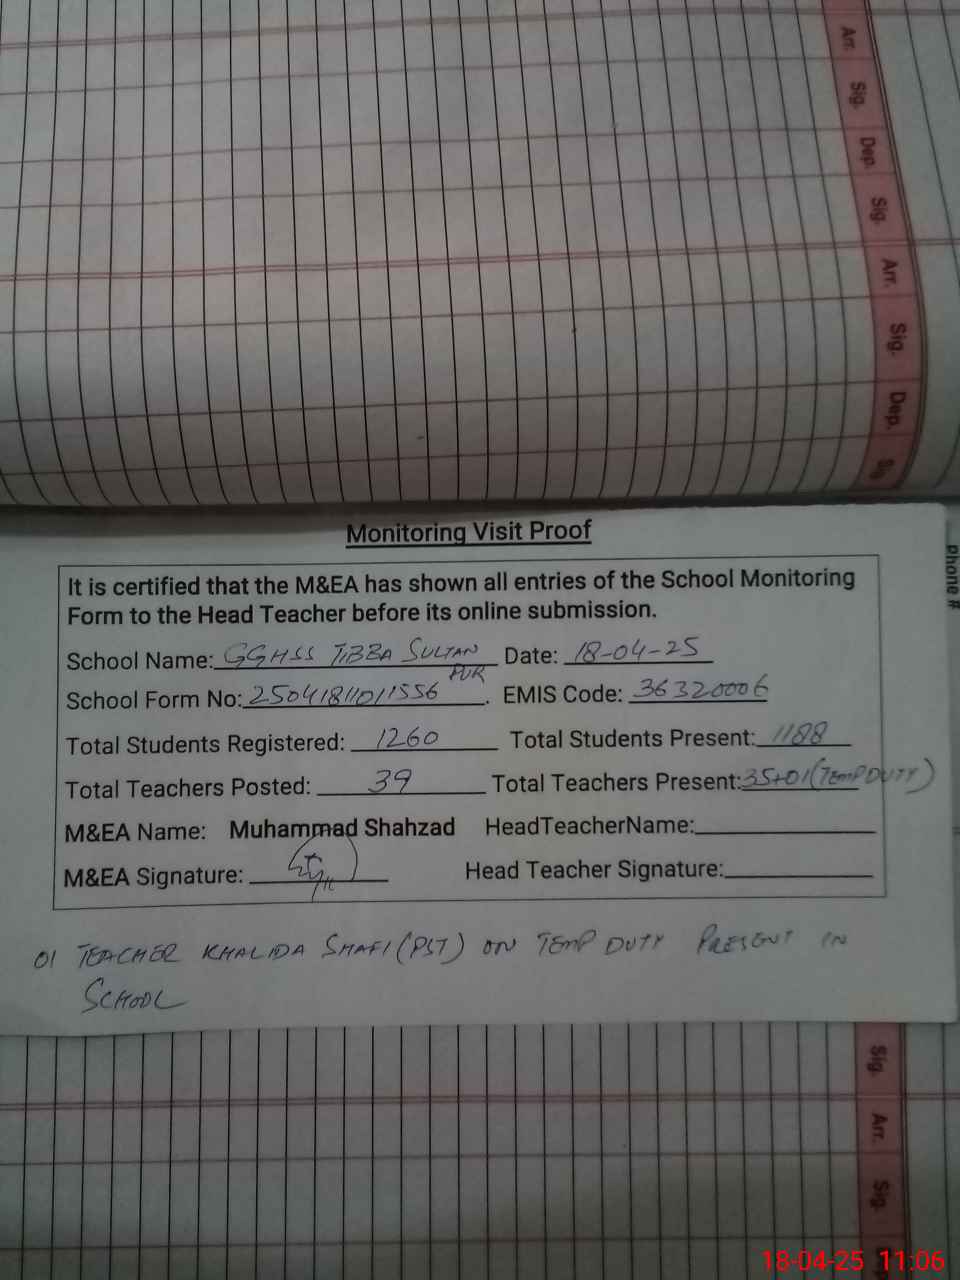 Arr.
Sig.
Dep.
Sig.
Arr.
Sig.
Dep.
Sig
Phone #
Monitoring Visit Proof
It is certified that the M&EA has shown all entries of the School Monitoring
Form to the Head Teacher before its online submission.
School Name: GGHSS TIBBA SULTAN PUR Date: 18-04-25
School Form No: 25041811011556. EMIS Code: 36320006
Total Students Registered: 1260 Total Students Present: 1188
Total Teachers Posted: 39 Total Teachers Present: 35+01 (TEMP DUTY)
M&EA Name: Muhammad Shahzad HeadTeacherName:
M&EA Signature: Head Teacher Signature:
01 TEACHER KHALIDA SHAFI (PST) ON TEMP DUTY PRESENT IN
SCHOOL
Sig.
Arr.
Sig.
18-04-25 11:06